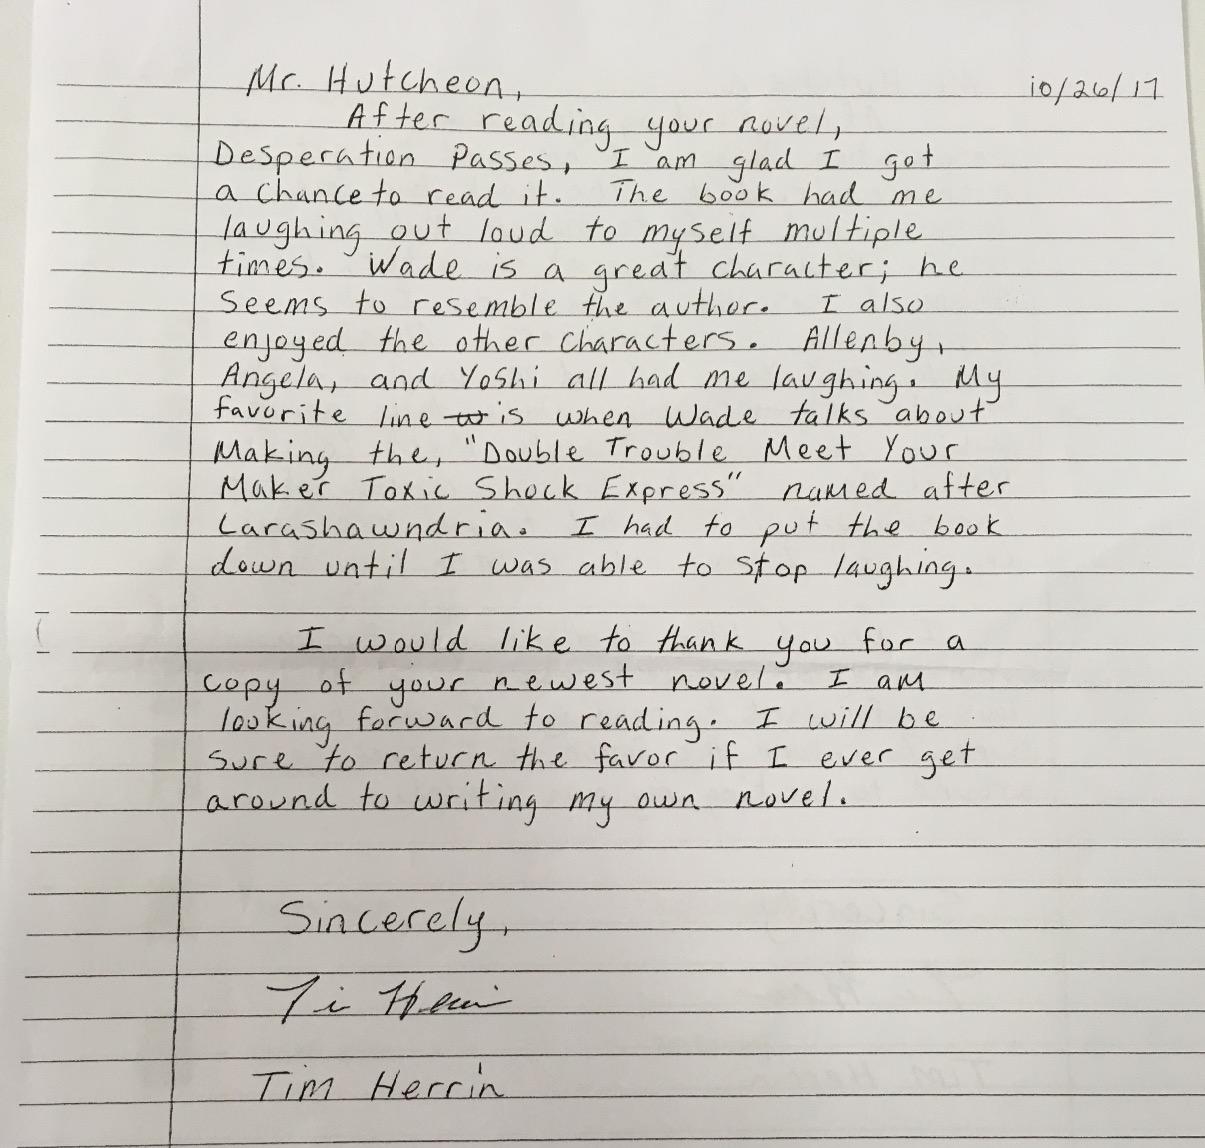 Mr. Hutcheon, 10/26/17
After reading your novel,
Desperation Passes, I am glad I got
a chance to read it. The book had me
laughing out loud to myself multiple
times. Wade is a great character; he
seems to resemble the author. I also
enjoyed the other characters. Allenby,
Angela, and Yoshi all had me laughing. My
favorite line is when Wade talks about
Making the, "Double Trouble Meet Your
Maker Toxic Shock Express" named after
Larashawndria. I had to put the book
down until I was able to stop laughing.
I would like to thank you for a
copy of your newest novel. I am
looking forward to reading. I will be
sure to return the favor if I ever get
around to writing my own novel.
Sincerely,
Tim Herrin
Tim Herrin